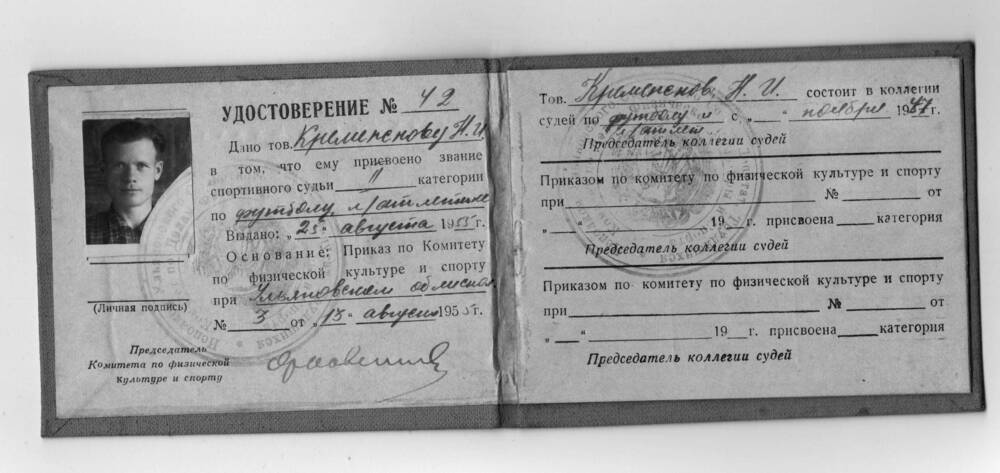 УДОСТОВЕРЕНИЕ № 42
Дано тов. Кременскову Н.И.
в том, что ему присвоено звание
спортивного судьи II категории
по футболу, л/атлетике
Выдано: „25" августа 1955 г.
Основание: Приказ по Комитету
по физической культуре и спорту
при Ульяновском
№ 3 от „13" августа 1955 г.
(Личная подпись)
Председатель
Комитета по физической
культуре и спорту
Тов. Кременсков Н. И. состоит в коллегии
судей по футболу и с „ " ноября 1947 г.
л/атлет
Председатель коллегии судей
Приказом по комитету по физической культуре и спорту
при № от
„ " 19 г. присвоена категория
Председатель коллегии судей
Приказом по комитету по физической культуре и спорту
при № от
„ " 19 г. присвоена категория
Председатель коллегии судей